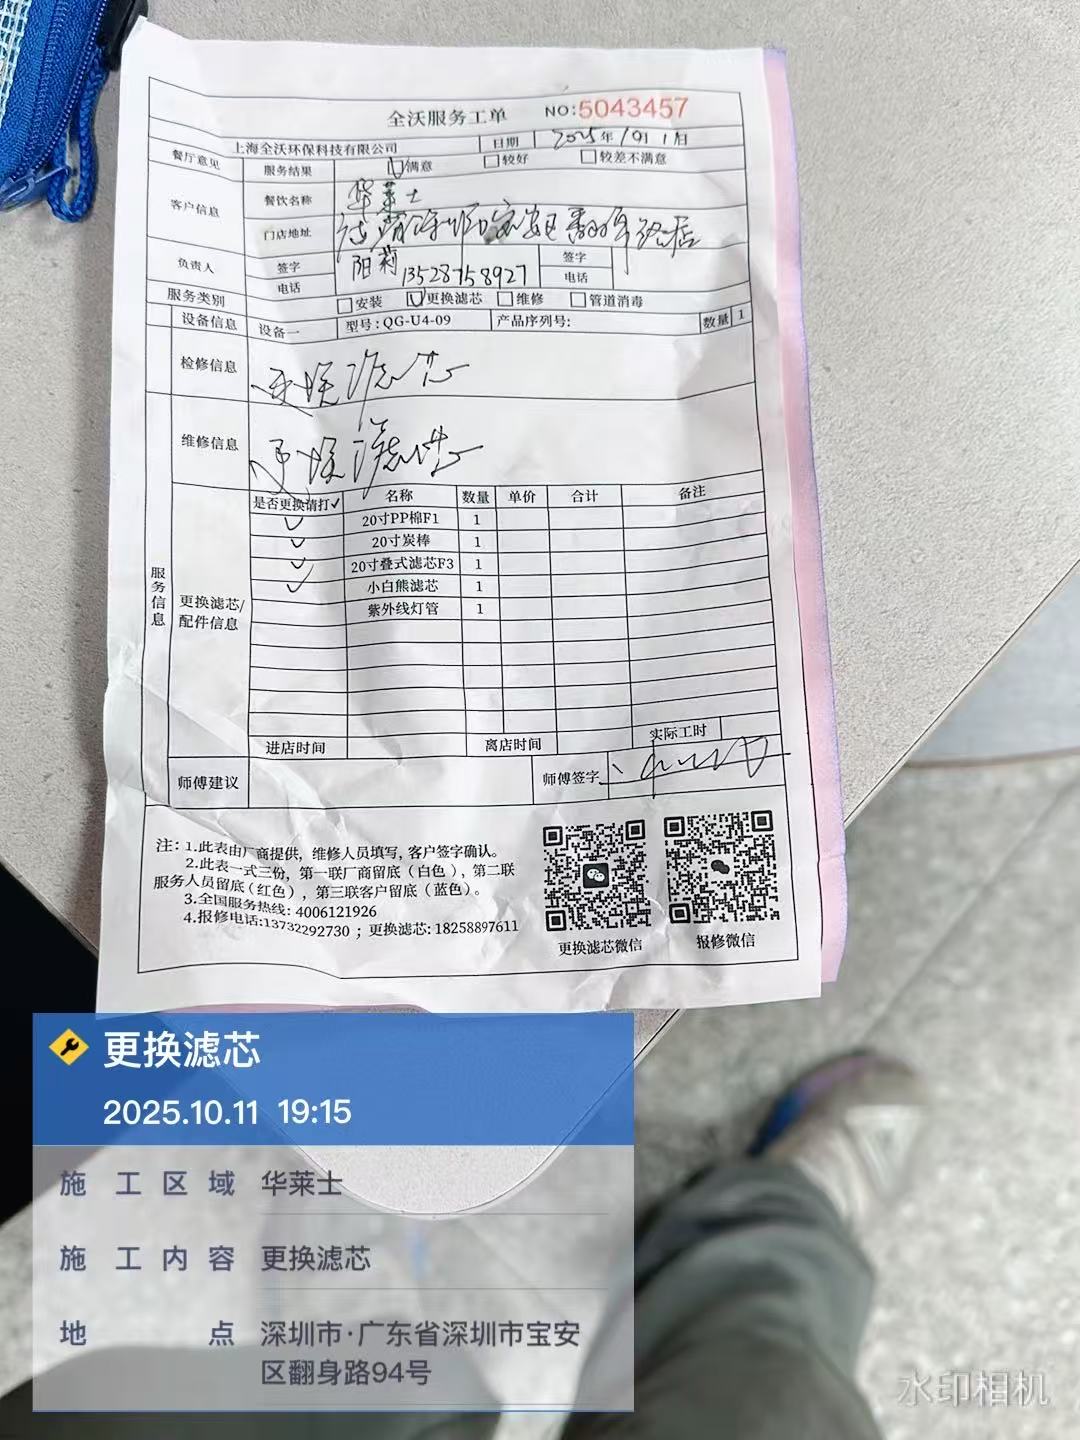 全沃服务工单 NO:5043457
上海全沃环保科技有限公司 日期 2025年10月11日
餐厅意见 服务结果 满意 较好 较差不满意
客户信息 餐饮名称 华莱士
门店地址
负责人 签字 阳莉 签字
电话 13528758927 电话
服务类别 安装 更换滤芯 维修 管道消毒
设备信息 设备一 型号:QG-U4-09 产品序列号: 数量 1
检修信息 更换滤芯
维修信息 更换滤芯
服务信息
更换滤芯/
配件信息
是否更换请打✓ 名称 数量 单价 合计 备注
✓ 20寸PP棉F1 1
✓ 20寸炭棒 1
✓ 20寸叠式滤芯F3 1
✓ 小白熊滤芯 1
紫外线灯管 1
进店时间 离店时间 实际工时
师傅建议 师傅签字
注: 1.此表由厂商提供，维修人员填写，客户签字确认。
2.此表一式三份，第一联厂商留底（白色），第二联
服务人员留底（红色），第三联客户留底（蓝色）。
3.全国服务热线: 4006121926
4.报修电话:13732292730 ；更换滤芯: 18258897611
更换滤芯微信 报修微信
更换滤芯
2025.10.11 19:15
施工区域 华莱士
施工内容 更换滤芯
地点 深圳市·广东省深圳市宝安
区翻身路94号
水印相机